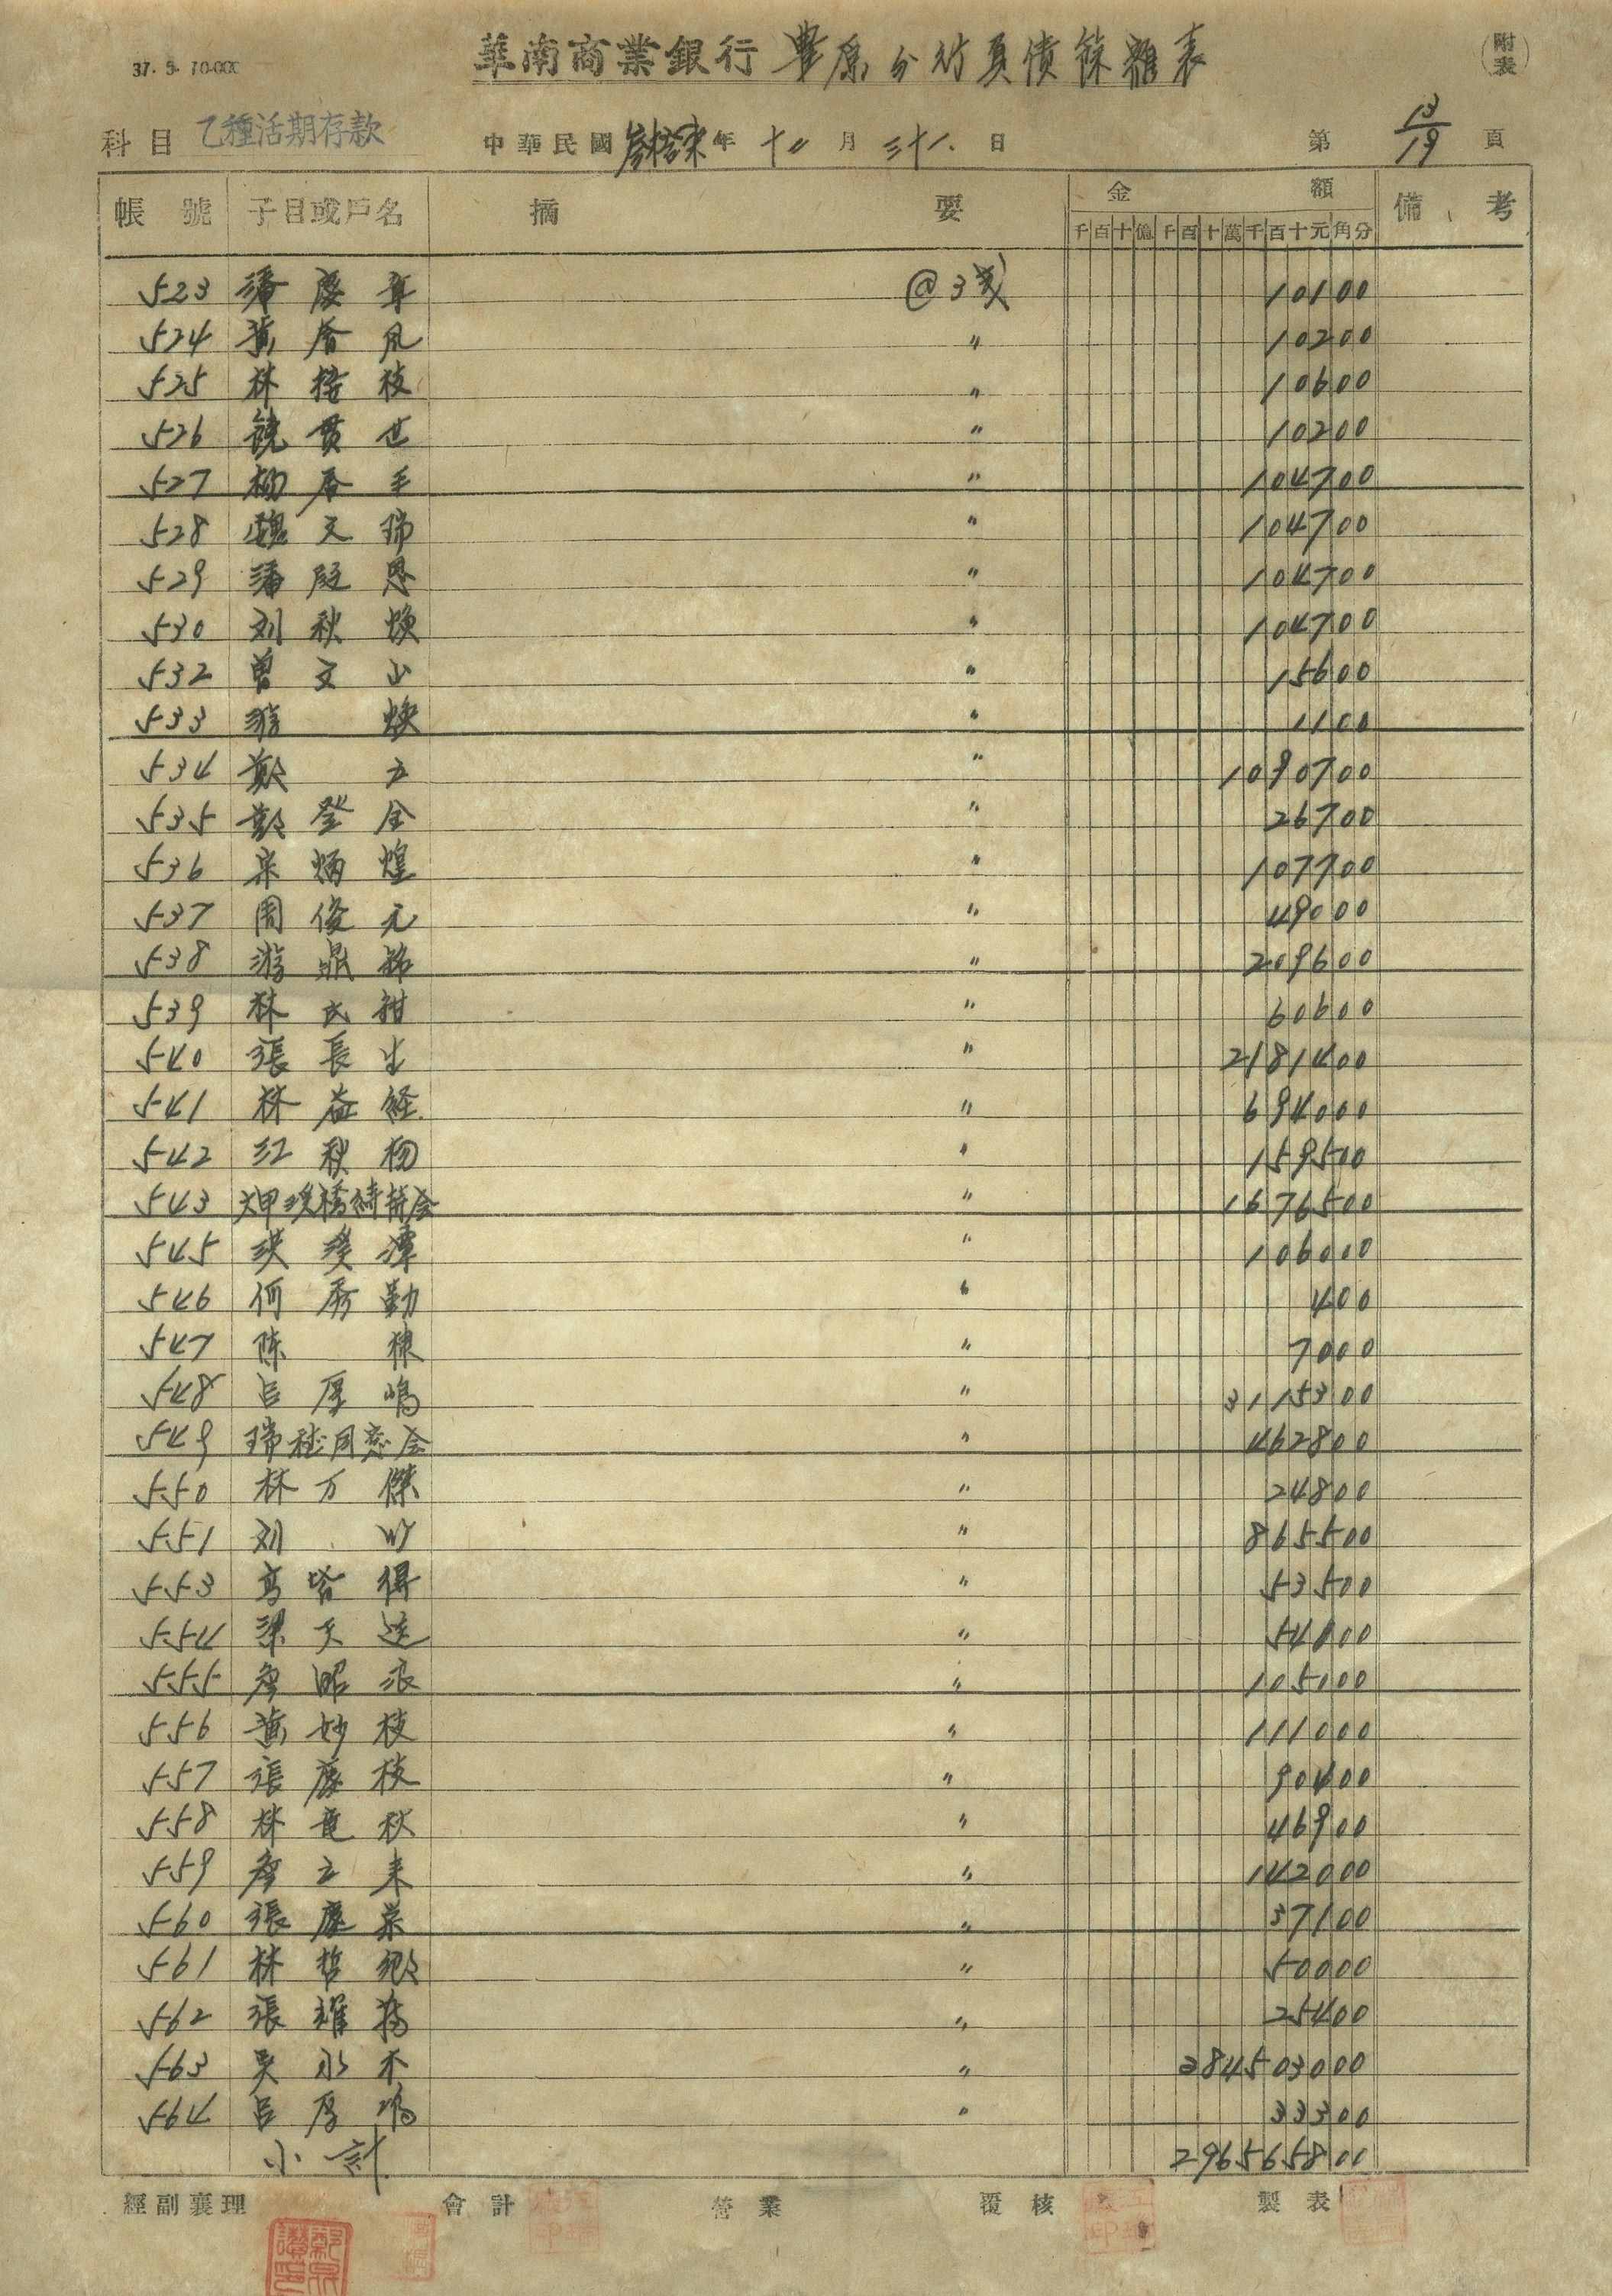 37. 5. 10.000
華南商業銀行 豐原分行負債餘額表
(附表)
科目 乙種活期存款 中華民國 叁拾柒 年 十二 月 三十一 日 第 13/19 頁
帳號 子目或戶名 摘要 金額 備考
千百十億千百十萬千百十元角分
523 潘慶章 @3 10100
524 黃春風 〃 10200
525 林格枝 〃 10600
526 饒貫世 〃 10200
527 楊春手 〃 104700
528 魏文瑞 〃 104700
529 潘庭恩 〃 104700
530 刘秋煥 〃 104700
532 曾文山 〃 15600
533 游煥 〃 1100
534 鄭 〃 1090700
535 鄭登全 〃 26700
536 宋炳煌 〃 107700
537 周俊元 〃 49000
538 游鼎銘 〃 209600
539 林氏甜 〃 60600
540 張長生 〃 2181400
541 林益経 〃 694000
542 江秋柳 〃 159500
543 大甲 橋 会 〃 1676500
545 洪 潭 〃 106000
546 何秀勤 〃 400
547 陈棣 〃 7000
548 呂厚鳴 〃 3115300
549 瑞穂同志会 〃 462800
550 林万傑 〃 24800
551 刘竹 〃 865500
553 高塔得 〃 53500
554 梁天送 〃 54000
555 詹昭浪 〃 105100
556 黃妙枝 〃 111000
557 張慶枝 〃 90400
558 林竜秋 〃 46900
559 詹立来 〃 142000
560 張慶榮 〃 37100
561 林哲 〃 50000
562 張耀揚 〃 25400
563 吳水木 〃 284503000
564 呂厚鳴 〃 33300
小計 296565800
經副襄理 會計 營業 覆核 製表